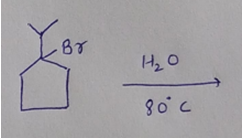 Br
H₂O
80°C